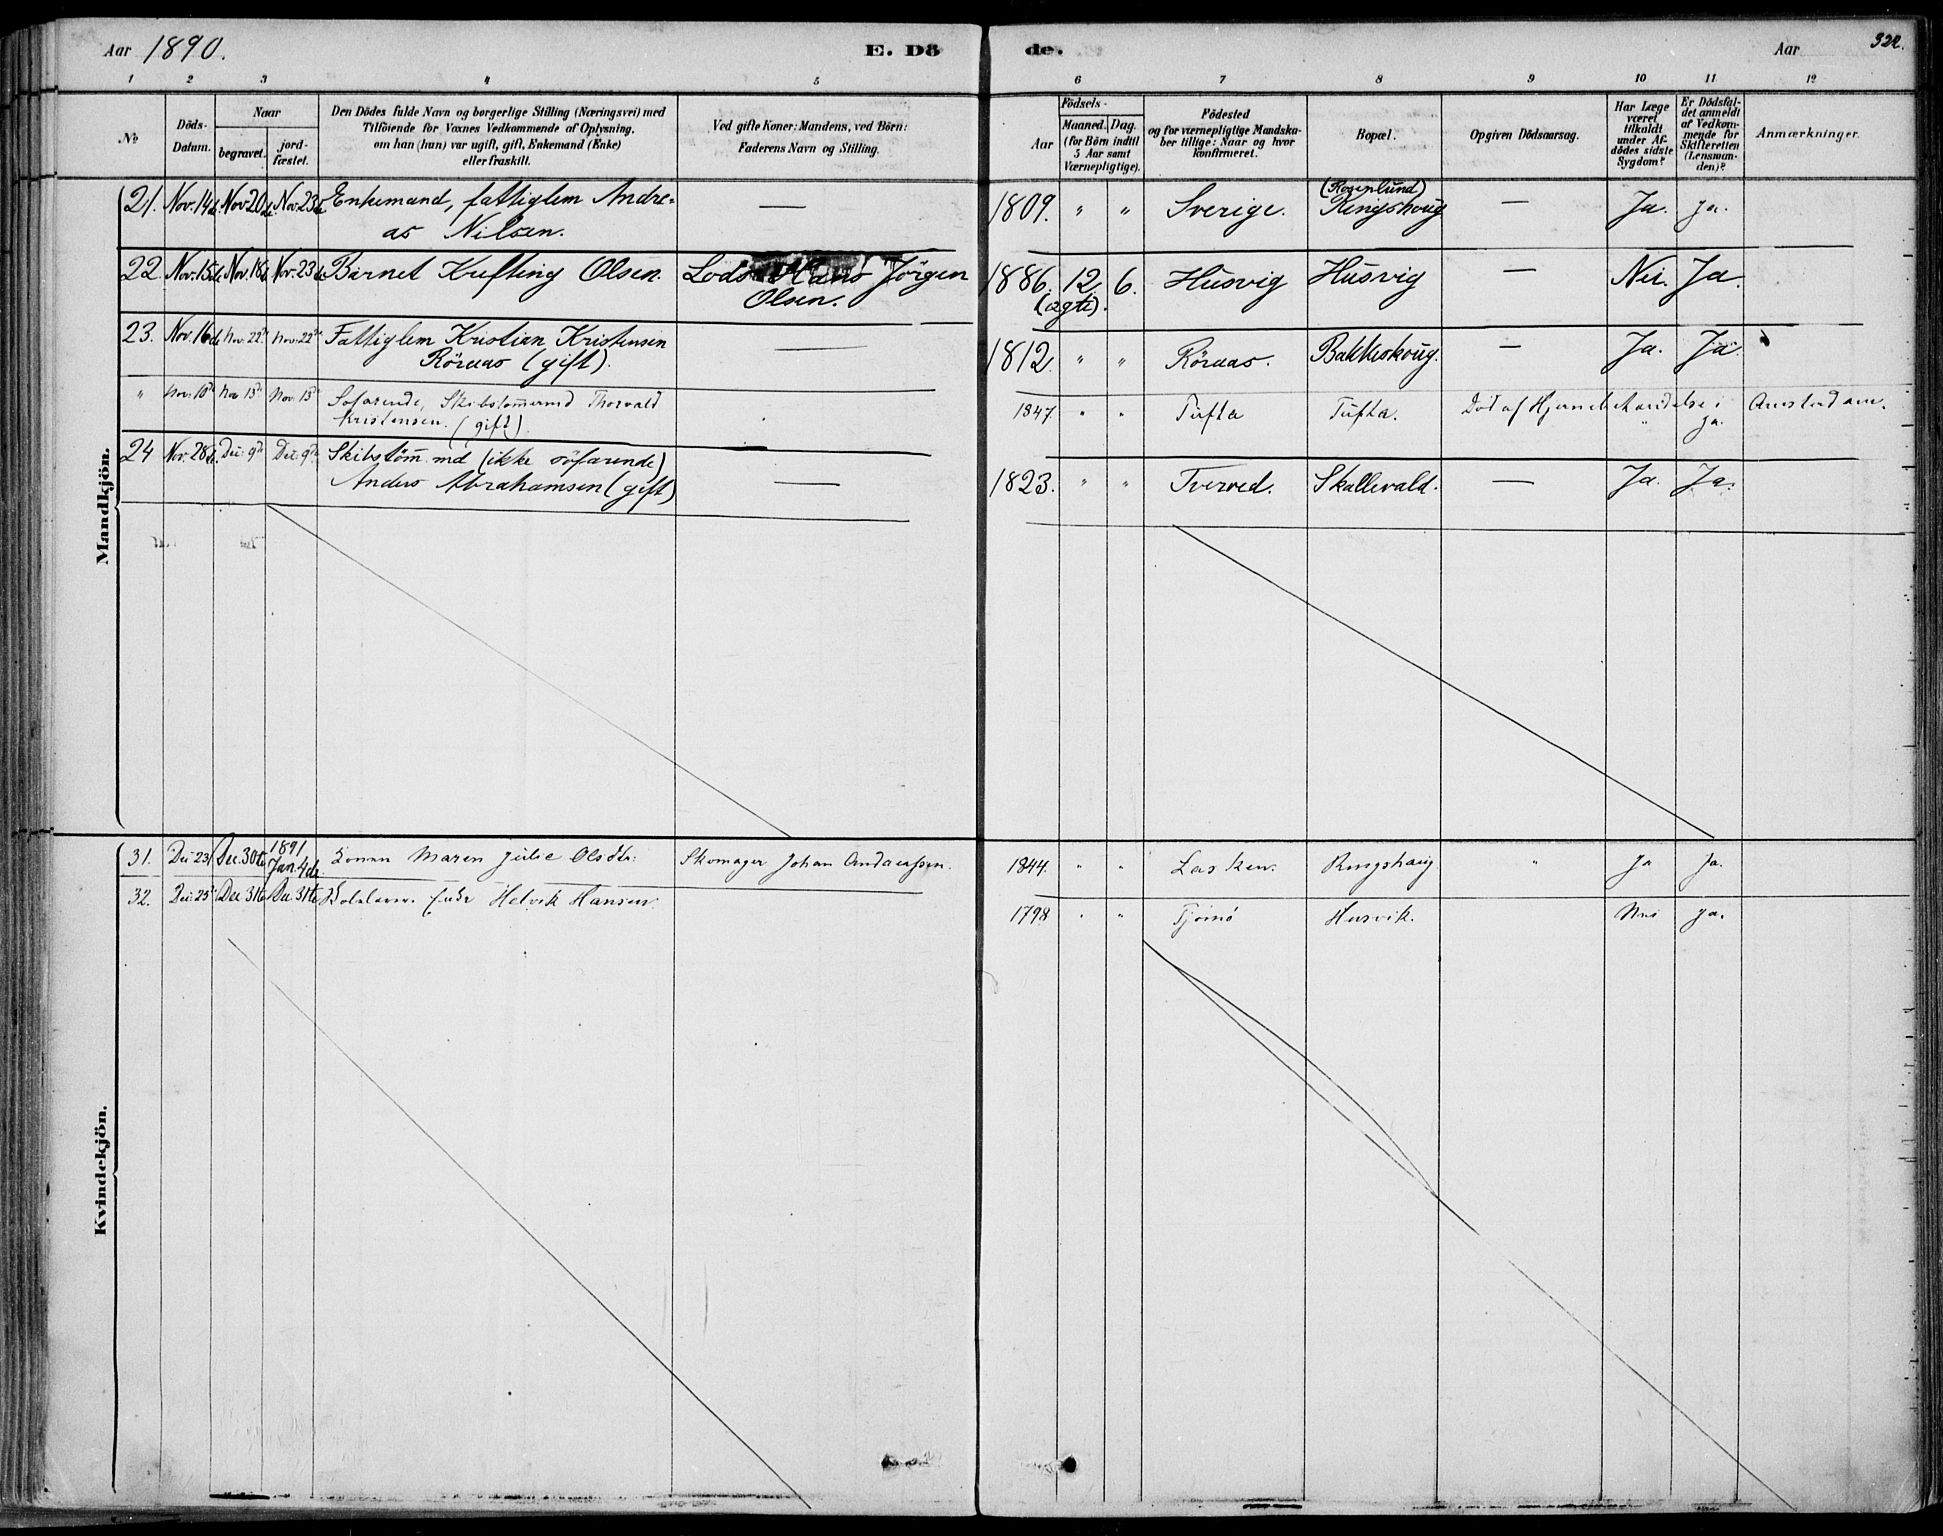 Aar 1890. E. Dö de. Aar 322.
1 2 3 4 5 6 7 8 9 10 11 12
No
Döds-Datum.
Naar
begravet.
jordfæstet.
Den Dödes fulde Navn og borgerlige Stilling (Næringsvei) med
Tilföiende for Voxnes Vedkommende af Oplysning,
om han (hun) var ugift, gift, Enkemand (Enke)
eller fraskilt.
Ved gifte Koner: Mandens, ved Börn:
Faderens Navn og Stilling.
Födsels-
Aar
Maaned. Dag.
(for Børn indtil
5 Aar samt
Værnepligtige).
Födested
og for værnepligtige Mandska-
ber tillige: Naar og hvor
konfirmeret.
Bopæl.
Opgiven Dödsaarsag.
Har Læge
været
tilkaldt
under Af-
dödes sidste
Sygdom?
Er Dödsfal-
det anmeldt
af Vedkom-
mende for
Skifteretten
(Lensman-
den)?
Anmærkninger.
Mandkjön.
21. Nov. 14de Nov 20de Nov. 23de Enkemand, fattiglem Andre-
as Nilsen. — 1809. " " Sverige. (Rosenlund) Ringshoug — Ja. ja.
22 Nov. 15de Nov. 18de Nov. 23de Barnet Kufting Olsen. Lods Hans Jörgen
Olsen. 1886. 12 6. Husvig Husvig — Nei. Ja.
(ægte).
23. Nov. 16de Nov. 22de Nov. 22de Fattiglem Kristian Kristensen
Röraas (gift). — 1812 " " Röraas. Bakkeskoug. — Ja. Ja.
" Nov. 10de Nov 13de Nov. 13de Söfarende, Skibstømmermd Thorvald
Kristensen. (gift). 1847 " " Tufta Tufta. Död af Hjernebetændelse i Amsterdam.
" ja.
24 Nov. 28de Dec. 9de Dec. 9de Skibstöm̄md (ikke söfarende)
Anders Abrahamsen (gift) — 1823. " " Tverved. Skallevald. — Ja. Ja.
Kvindekjön.
31. Dec 23 Dec. 30te 1891 Jan. 4de Konen Maren Julie Olsdtr: Skomager Johan Andreassen. 1844. " " Ringshaug " Ja Ja.
32. Dec. 25 Dec 31te Dec 31te Enke Helvik Hansen. 1798 " " Tjömö Husvik. Nei ja.